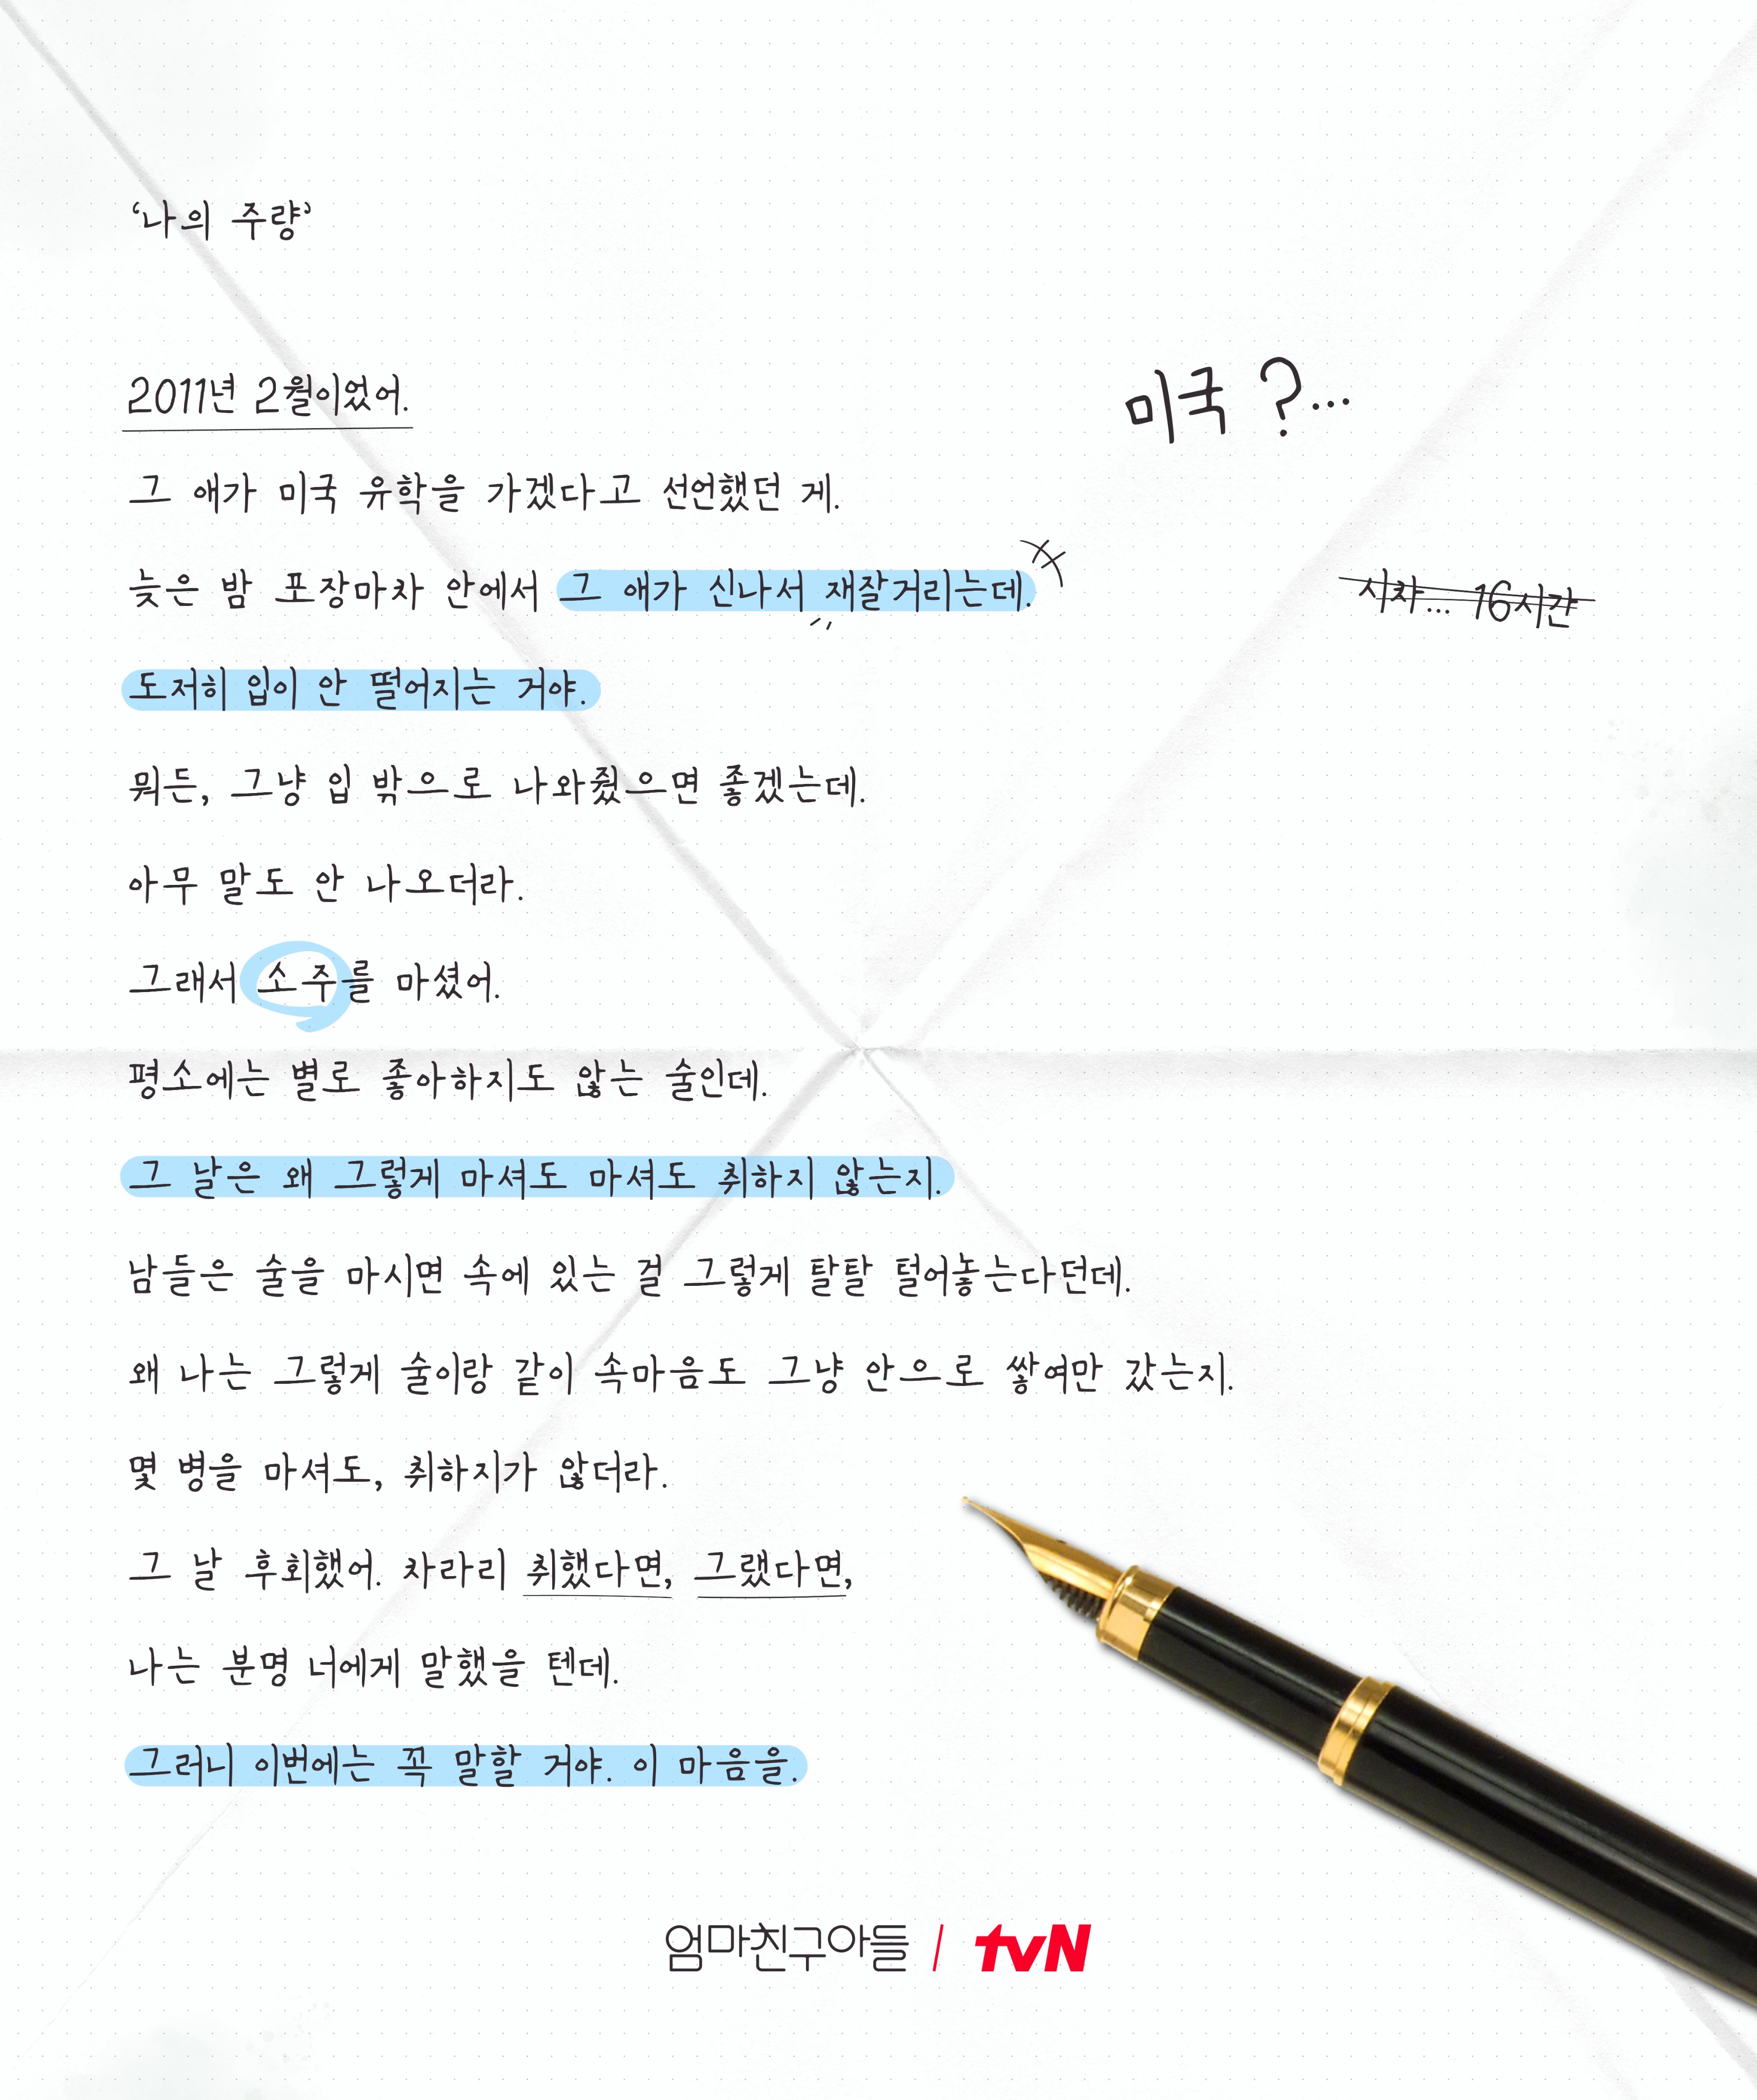 ‘나의 주량’
2011년 2월이었어.
미국 ?...
그 애가 미국 유학을 가겠다고 선언했던 게.
늦은 밤 포장마차 안에서 그 애가 신나서 재잘거리는데.
시차... 16시간
도저히 입이 안 떨어지는 거야.
뭐든, 그냥 입 밖으로 나와줬으면 좋겠는데.
아무 말도 안 나오더라.
그래서 소주를 마셨어.
평소에는 별로 좋아하지도 않는 술인데.
그 날은 왜 그렇게 마셔도 마셔도 취하지 않는지.
남들은 술을 마시면 속에 있는 걸 그렇게 탈탈 털어놓는다던데.
왜 나는 그렇게 술이랑 같이 속마음도 그냥 안으로 쌓여만 갔는지.
몇 병을 마셔도, 취하지가 않더라.
그 날 후회했어. 차라리 취했다면, 그랬다면,
나는 분명 너에게 말했을 텐데.
그러니 이번에는 꼭 말할 거야. 이 마음을.
엄마친구아들 / tvN